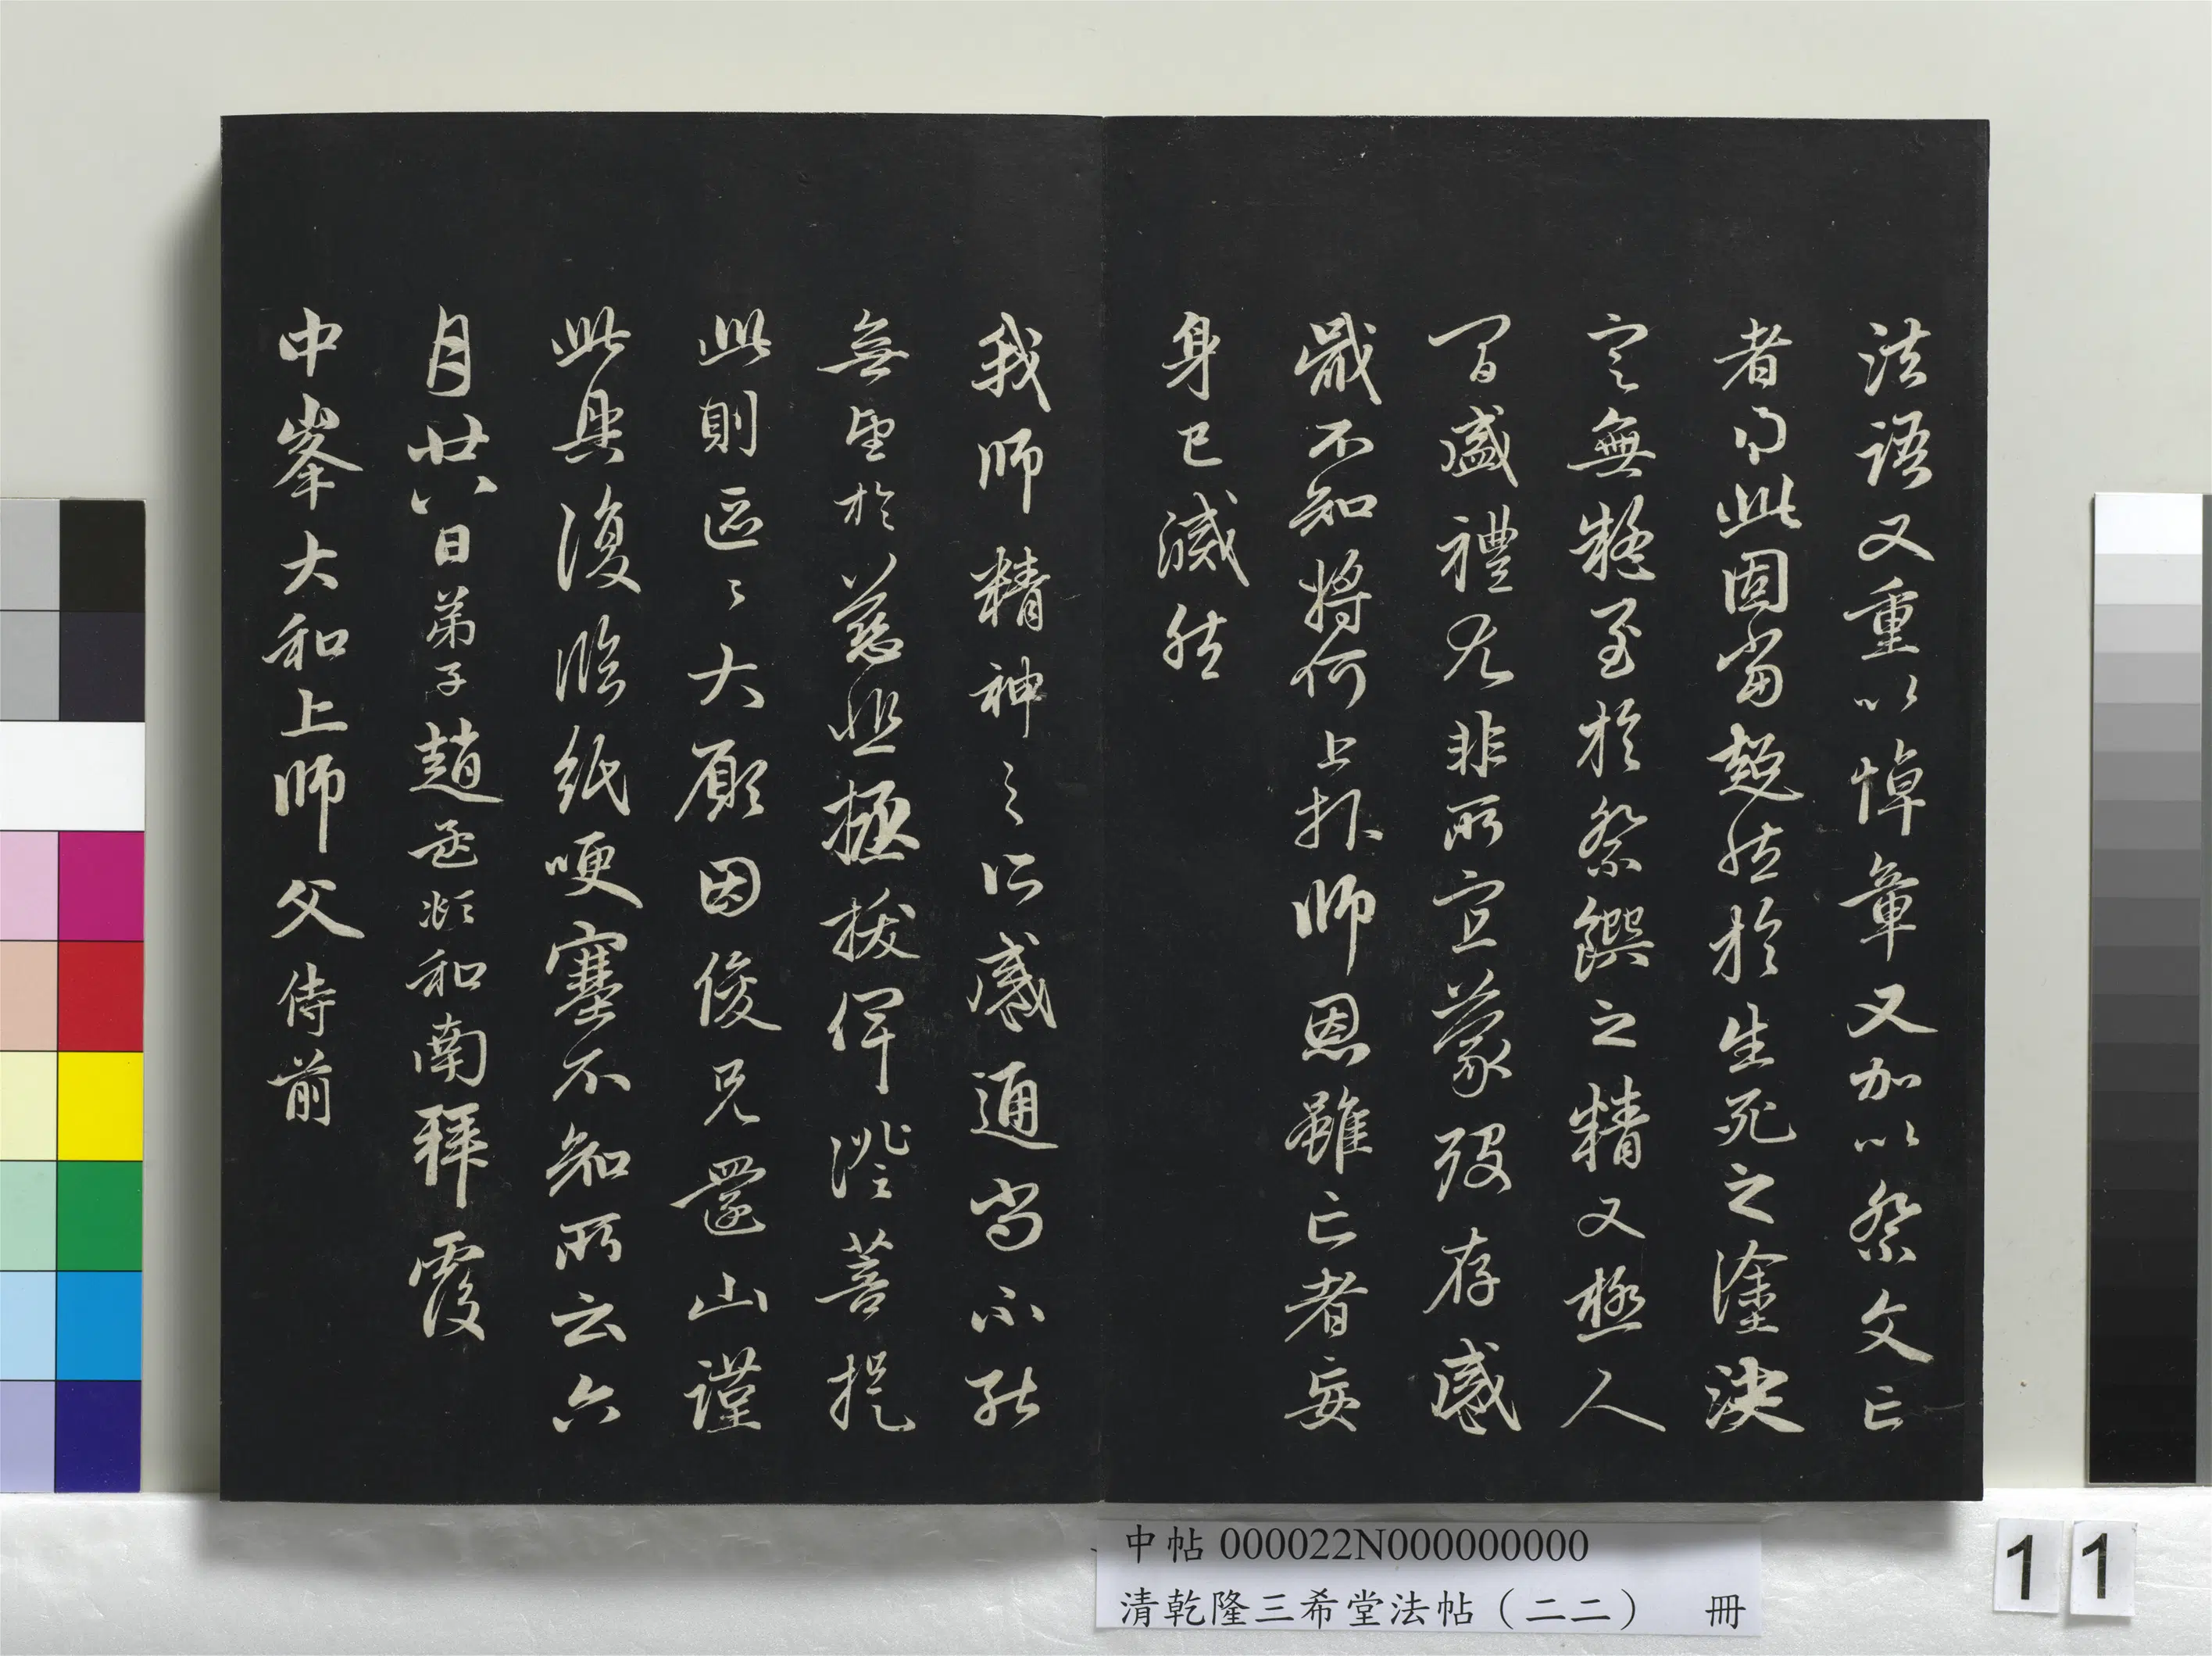 法語又重以悼章又加以祭文亡
者得此固當超然於生死之塗決
定無疑至於祭饌之精又極人
間盛禮尤非所宜蒙歿存感
戴不知將何上报師恩雖亡者妄
身已滅然
我師精神之所感通尚不能
無望於慈悲拯拔俾證菩提
此則區區大願因俊兄還山謹
此具復臨紙哽塞不知所云六
月廿八日弟子趙孟頫和南拜覆
中峯大和上師父侍前
中帖 000022N000000000
清乾隆三希堂法帖（二二） 冊
11